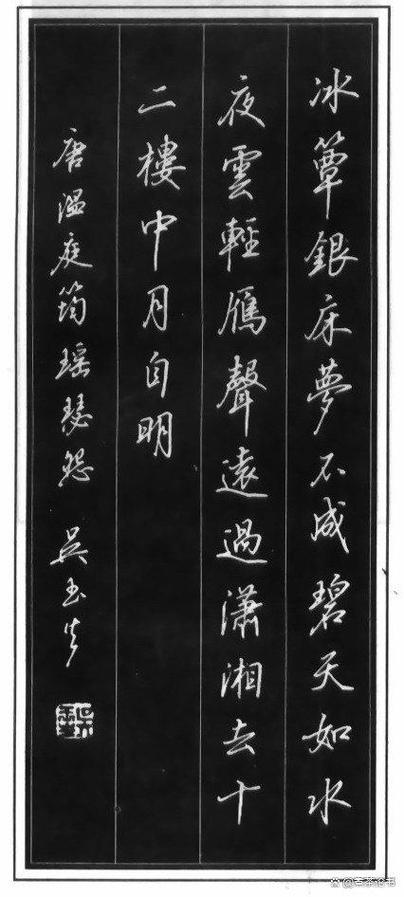 冰簟銀床夢不成碧天如水
夜雲輕鴈聲遠過瀟湘去十
二樓中月自明
唐温庭筠瑶瑟怨 吳玉生